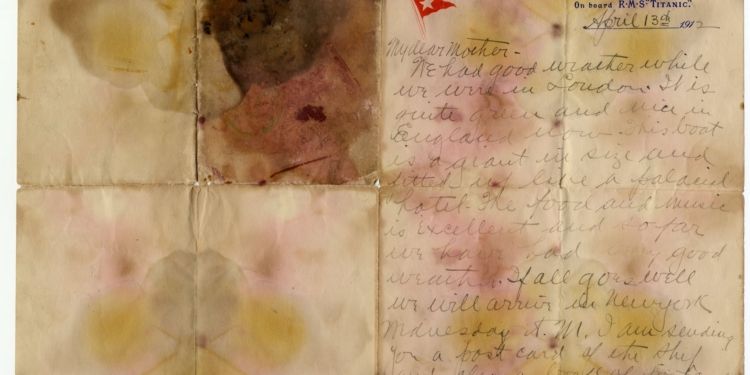 On board R.M.S. "TITANIC."
April 13th 1912
My dear Mother-
We had good weather while
we were in London. It is
quite green and nice in
England now. This boat
is a giant in size and
fitted up like a palacial
hotel. The food and music
is excellent and so far
we have had very good
weather. If all goes well
we will arrive in New York
Wednesday A.M. I am sending
you a post card of the ship
and also a book of